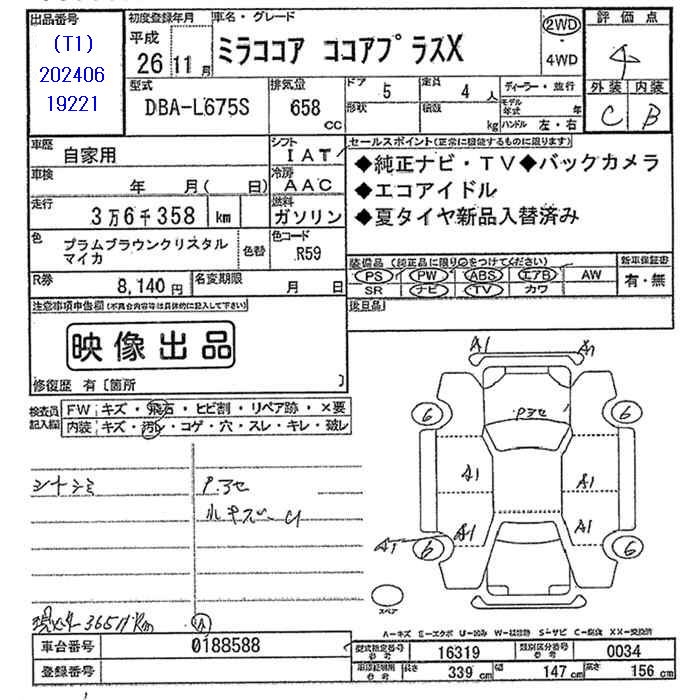 出品番号
(T1)
202406
19221
初度登録年月
平成
26 11月
車名・グレード
ミラココア ココアプラスX
2WD
・
4WD
評価点
4
外装 内装
C B
型式
DBA-L675S
排気量
658
CC
ドア
5
定員
4 人
形状
積数
kg
ディーラー・並行
モデル年式 年
ハンドル 左・右
車歴
自家用
シフト
IAT
車検
年 月( 日)
冷房
AAC
走行
3万6千358 km
燃料
ガソリン
色
プラムブラウンクリスタル
マイカ
色替
色コード
R59
R券
8,140円
名変期限
月 日
セールスポイント(正常に機能するものに限ります)
◆純正ナビ・TV◆バックカメラ
◆エコアイドル
◆夏タイヤ新品入替済み
装備品(純正品に限り○をつけてください)
PS PW ABS エアB AW
SR ナビ TV カワ
新車保証書
有・無
後日品
注意事項申告欄(不具合内容等は具体的に記入して下さい)
映像出品
修復歴 有〔箇所 〕
検査員
記入欄
FW キズ・飛石・ヒビ割・リペア跡・×要
内装 キズ・汚レ・コゲ・穴・スレ・キレ・破レ
シナシミ
P.アセ
ルキズ
現メーター 36511Km
A
A1
A1
Pアセ
6
6
A1
A1
A1
A1
6
6
スペア
A-キズ E-エクボ U-凹み W-補修跡 S-サビ C-腐食 XX-交換済
車台番号
0188588
登録番号
型式指定番号
参考
16319
類別区分番号
参考
0034
車両諸元
参考
長さ
339 cm
幅
147 cm
高さ
156 cm